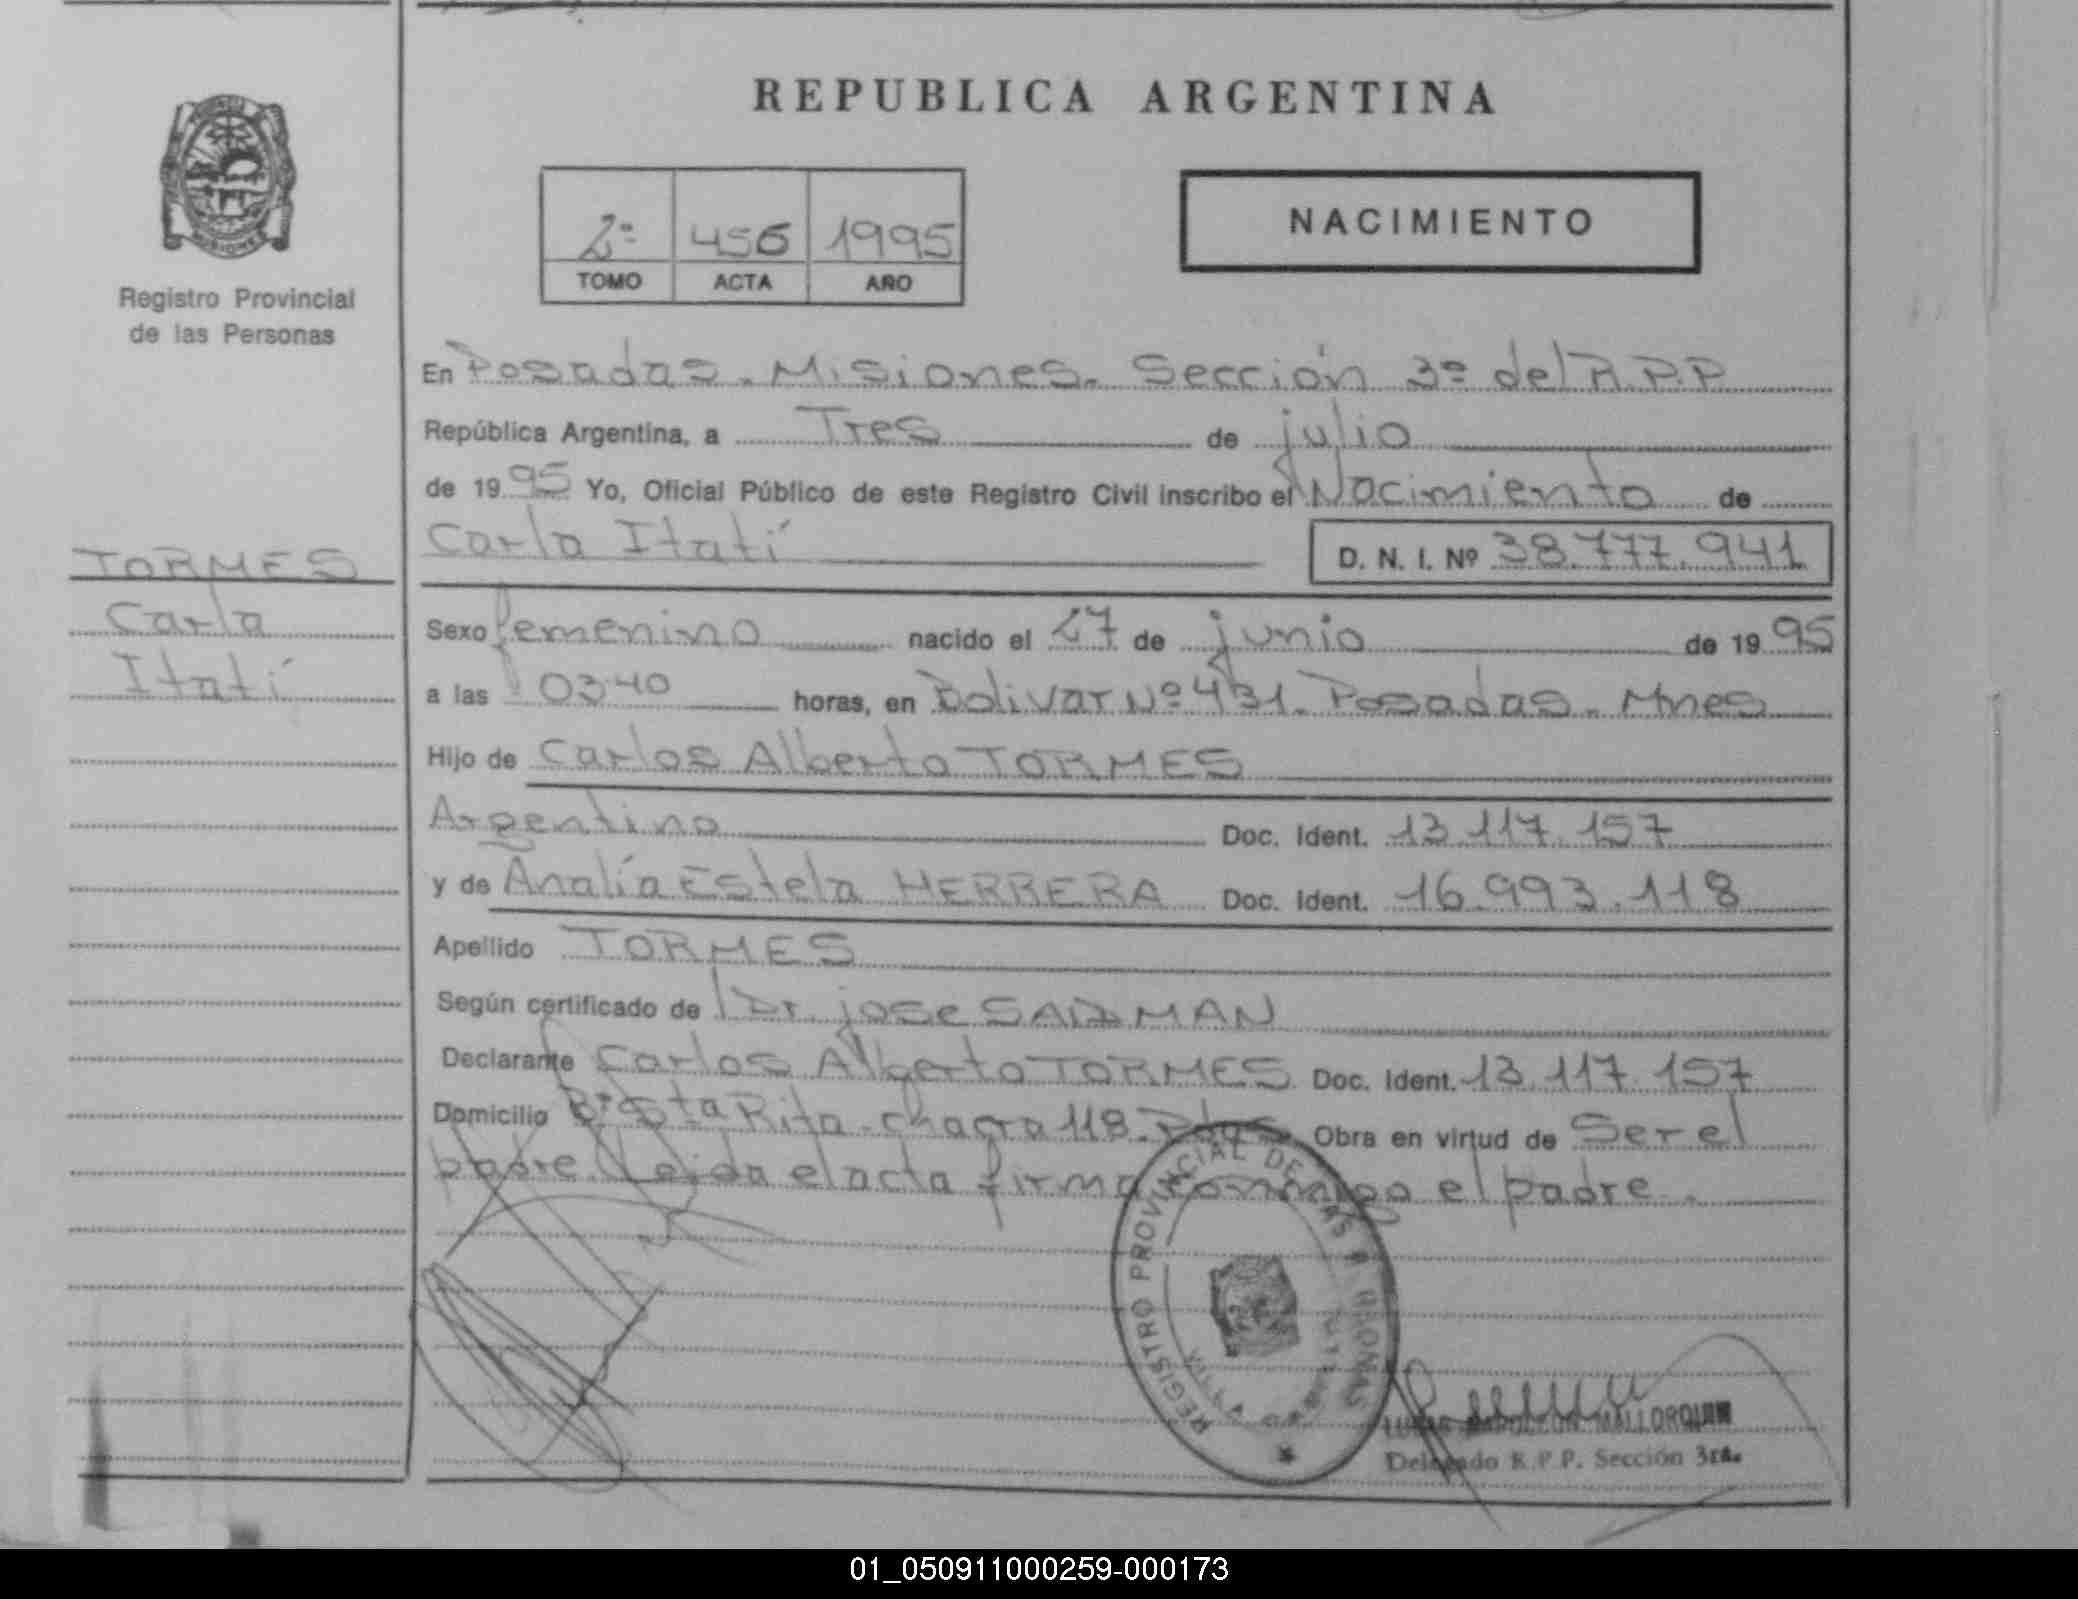 REPUBLICA ARGENTINA
MISIONES
Registro Provincial
de las Personas
2º 456 1995
TOMO ACTA AÑO
NACIMIENTO
En Posadas. Misiones. Sección 3º del R.P.P
República Argentina, a Tres de julio
de 1995 Yo, Oficial Público de este Registro Civil inscribo el Nacimiento de
Carla Itatí D. N. I. Nº 38.777.941
TORMES
Carla
Itatí
Sexo femenino nacido el 27 de junio de 1995
a las 0340 horas, en Bolivar Nº 431. Posadas. Mnes
Hijo de Carlos Alberto TORMES
Argentino Doc. Ident. 13.117.157
y de Analía Estela HERRERA Doc. Ident. 16.993.118
Apellido TORMES
Según certificado de Dr. jose
Declarante Carlos Alberto TORMES Doc. Ident. 13.117.157
Domicilio Bº Sta Rita - chacra 118. Pdas Obra en virtud de Ser el
padre. Leida el acta firma conmigo el padre.
REGISTRO PROVINCIAL DE LAS PERSONAS
MALLORQUIN
Delegado R.P.P. Sección 3ra.
01_050911000259-000173